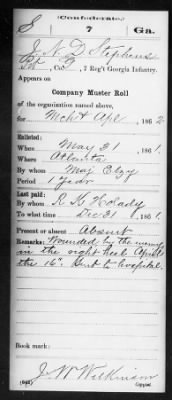 (Confederate.)
S 7 Ga.
J. N. D. Stephens
Pvt, Co. , 7 Reg't Georgia Infantry.
Appears on
Company Muster Roll
of the organization named above,
for Mch & Apl, 1862
Enlisted:
When May 31, 1861.
Where Atlanta
By whom Maj Elzy
Period 1 Year
Last paid:
By whom R. K. Holaday
To what time Dec 31, 1861.
Present or absent Absent
Remarks: Wounded by the enemy
in the right heel April
the 16". Sent to hospital.
Book mark:
J. W. Wilkinson
(642) Copyist.